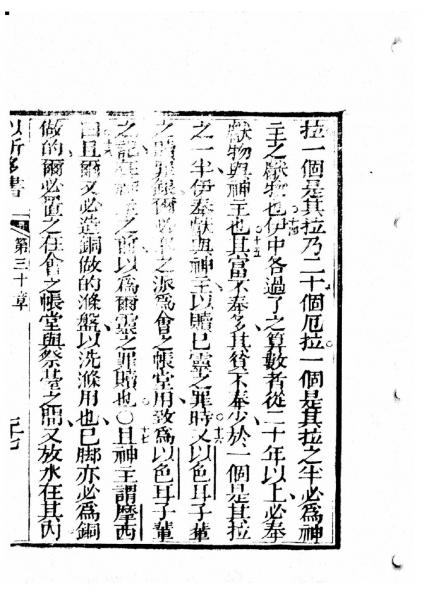 拉一個是其拉乃二十個厄拉一個是其拉之半必為神
主之獻物也伊中各過了之算數者從二十年以上必奉
十四
獻物與神主也其富不奉多其貧不奉少於一個是其拉
十五
之一半伊奉獻與神主以贖己靈之罪時又以色耳子輩
十六
之贖罪銀爾必之派為會之帳堂用致為以色耳子輩
之記神之前以為爾靈之罪贖也○且神主謂摩西
十七
曰且爾又必造銅做的滌盤以洗滌用也己脚亦必為銅
做的爾必置之在會之帳堂與祭臺之間又放水在其內
第三十章